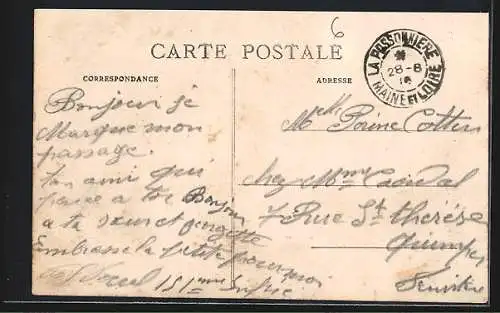 6
CARTE POSTALE
CORRESPONDANCE
ADRESSE
LA POSSONNIÈRE
28-8
16
MAINE ET LOIRE
Bonjour je
Marque mon
passage.
ton ami qui
pense a toi Bonjour
a ta sœur et
Embrasse la petite pour moi
151
Melle Cotten
chez Mme
7 Rue Ste Thérèse
Quimper
Finistère